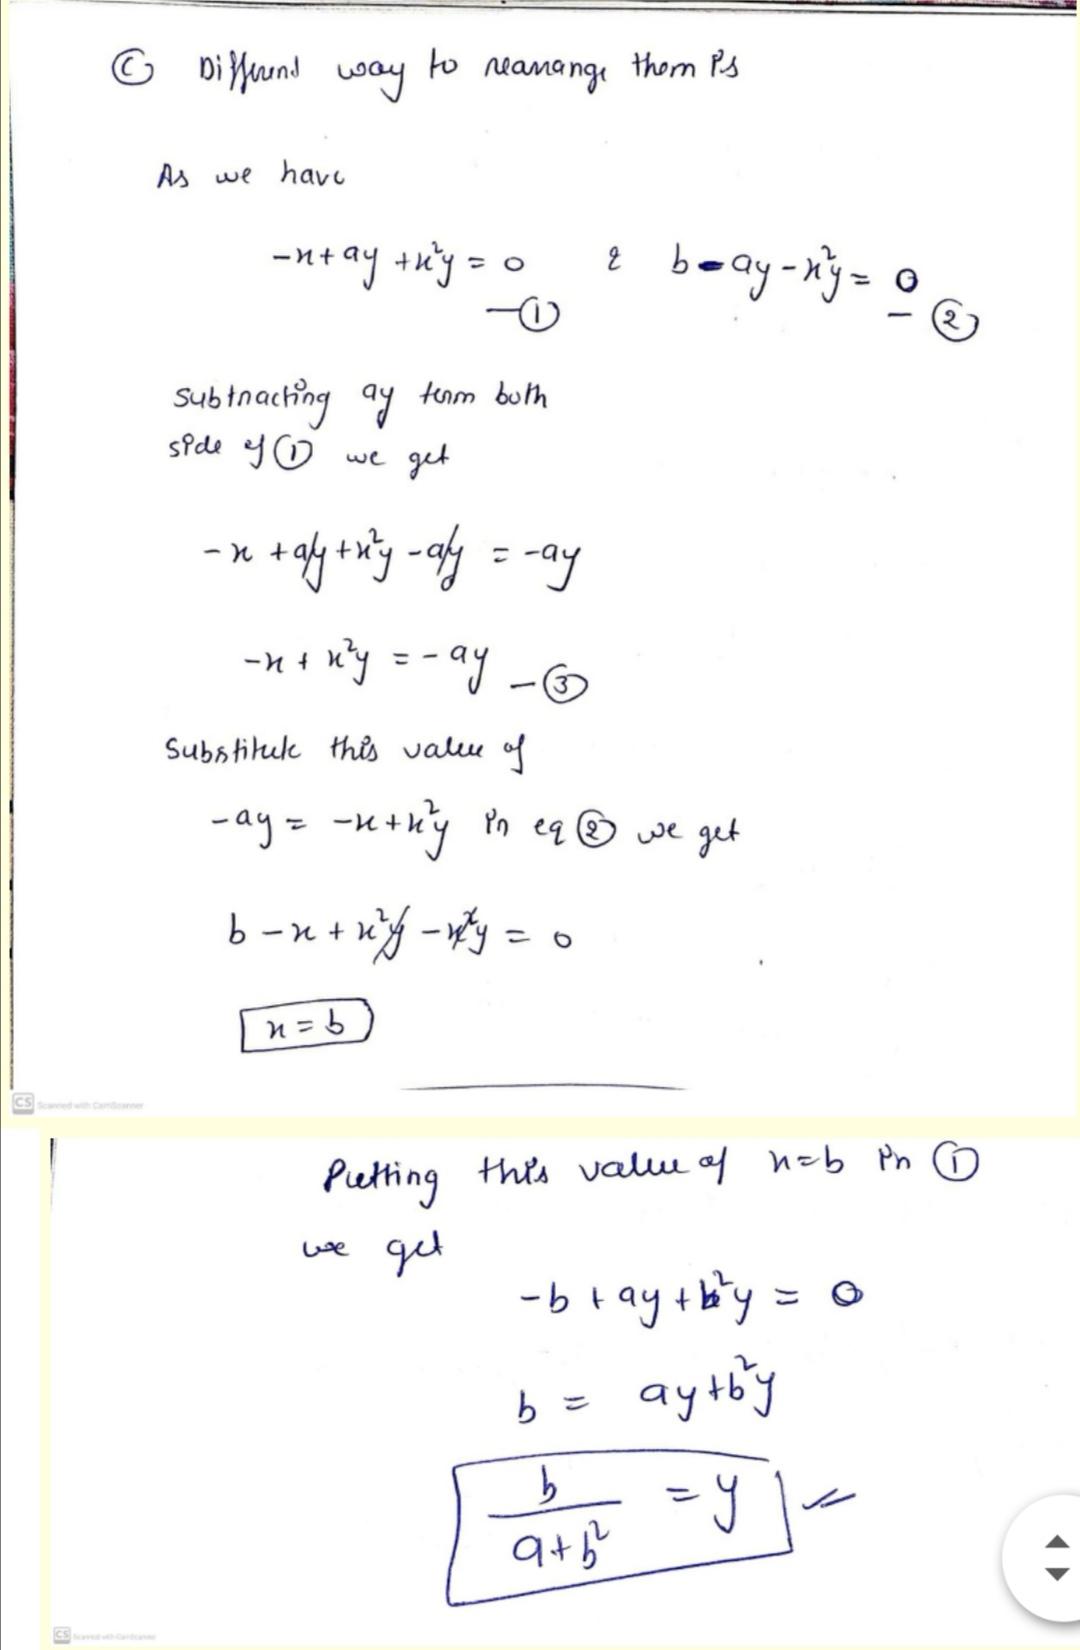 (c) Different way to rearrange them is
As we have
-x + ay + x²y = 0 & b - ay - x²y = 0
— (1) — (2)
Subtracting ay term both
side of (1) we get
-x + ay + x²y - ay = -ay
-x + x²y = -ay — (3)
Substitute this value of
-ay = -x + x²y in eq (2) we get
b - x + x²y - x²y = 0
x = b
CS Scanned with CamScanner
Putting this value of x=b in (1)
we get
-b + ay + b²y = 0
b = ay + b²y
b
― = y
a+b²
CS Scanned with CamScanner